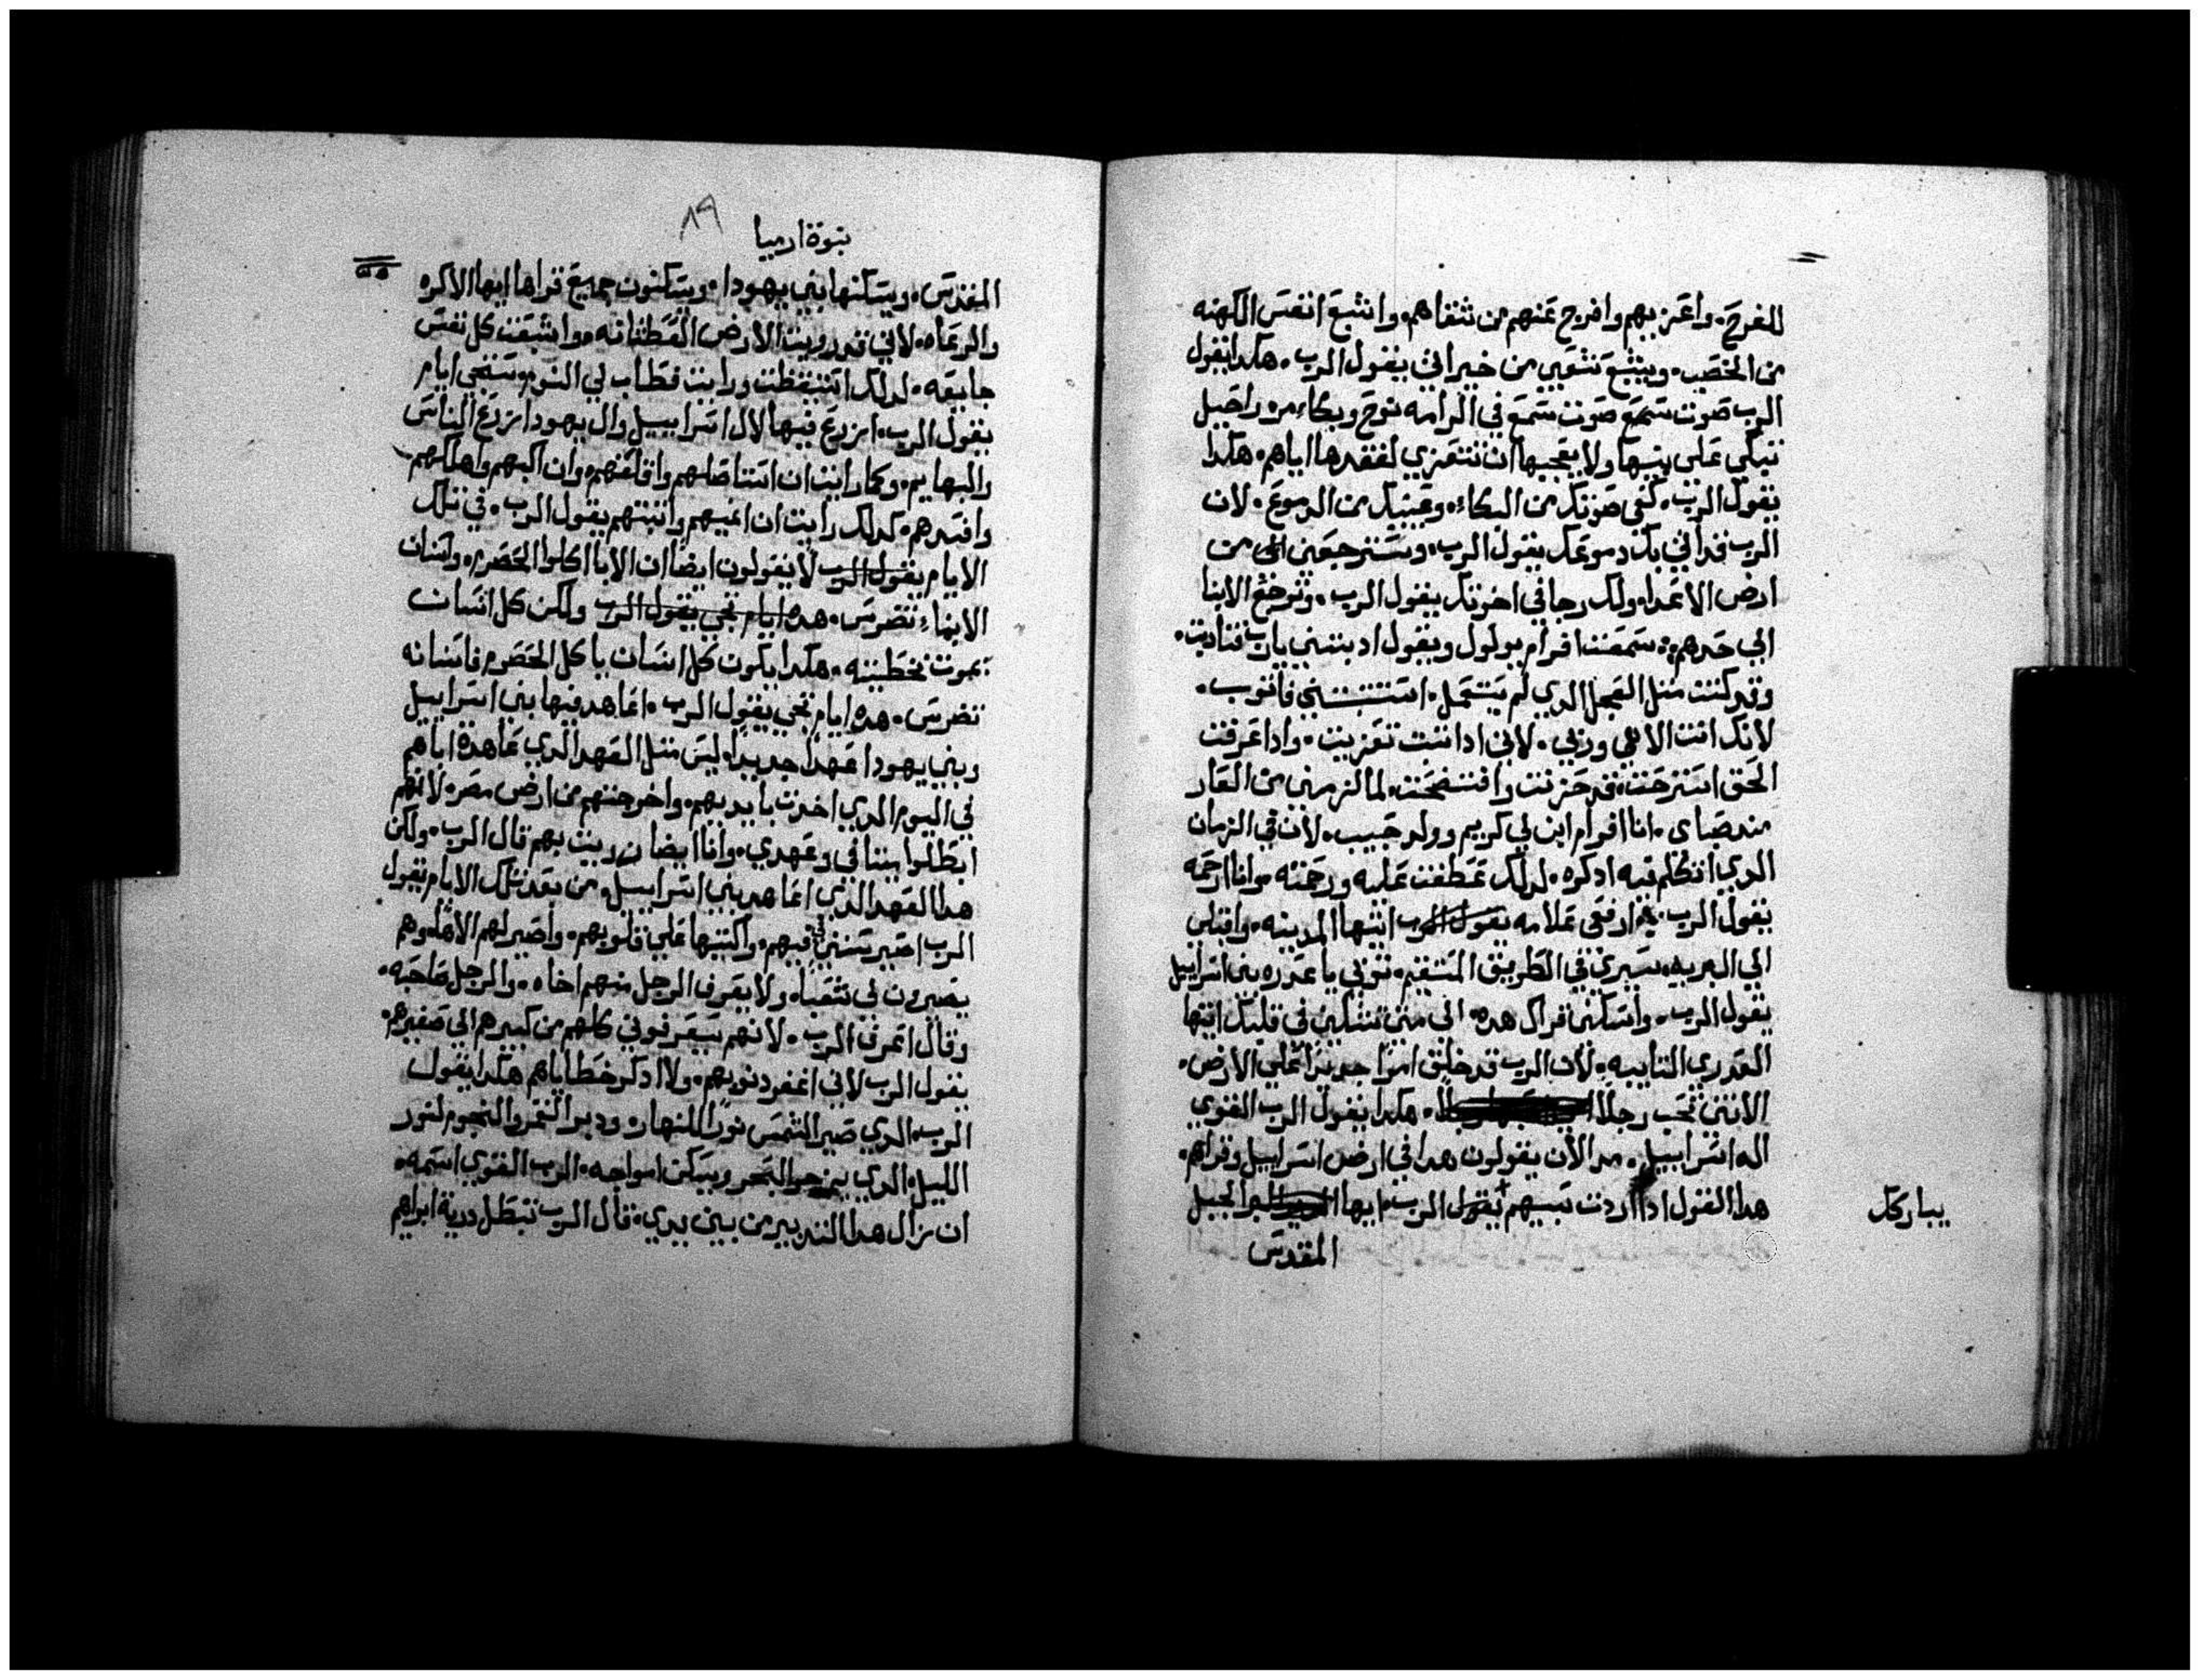 للفرح. واعزيهم وافرح عنهم من شقاهم. واشبع انفس الكهنه
من الخصب. ويشبع شعبي من خيراتي يقول الرب. هكدا يقول
الرب صوت سمع صوت سمع في الرامه نوح وبكاء مر راحيل
تبكي على بنيها ولا يعجبها ان تتعزي لفقدها اياهم. هكدا
يقول الرب. كفي صوتك من البكاء. وعينيك من الدموع. لان
الرب قد اتي بك دموعك يقول الرب. وسترجعين الي من
ارض الاعدا. ولك رجا في اخرتك يقول الرب. وترجع الابنا
الي حدهم. سمعت افرام يولول ويقول ادبتني يارب فتادبت.
وقد كنت مثل العجل الدي لم يستعمل. استتبتني فاتوب.
لانك انت الاهي وربي. لاني ادا تبت تعزيت. وادا عرفت
الحق استرحت. قد حزنت وافتضحت. لما لزمني من العار
مند صباي. انا افرام ابن لي كريم وولد حبيب. لان في الزمان
الدي اتكلم فيه ادكره. لدلك عطفت عليه ورحمته. وانا ارحمه
يقول الرب. ارفعي علامه يقول الرب ايتها المدينه. واقبلي
الي البريه. سيري في الطريق المستقيم. توبي يا عدره بني اسراييل
يقول الرب. واسكني قراك هده. الي متي تشكين في قلبك ايتها
العدري التايبه. لان الرب قد خلق امرا جديدا علي الارض.
الانثي تحب رجلا. هكدا يقول الرب القوي
اله اسراييل. مد الان يقولون هدا في ارض اسراييل وقراهم.
هدا القول ادا اردت سبيهم يقول الرب. ايها الجبل
يباركك
المقدس
نبوة ارميا
٨٩
المقدس. ويسكنها بني يهودا. ويسكنون جميع قراها ايها الاكره
والرعاه. لاني قد رويت الارض العطشانه. واشبعت كل نفس
جايعه. لدلك استيقظت ورايت فطاب لي النوم. ستجي ايام
يقول الرب. ازرع فيها لال اسراييل وال يهودا زرع الناس
والبهايم. وكما رايت ان استاصلهم واقلعهم. وان اكبهم واهلكهم
وافسدهم. كدلك رايت ان ابنيهم واثبتهم يقول الرب. في تلك
الايام يقول الرب لا يقولون ايضا ان الابا اكلوا الحصرم. واسنان
الابناء تضرس. هده ايام تجي يقول الرب ولكن كل انسان
يموت بخطيته. هكدا يكون كل انسان ياكل الحصرم فاسنانه
تضرس. هده ايام تجي يقول الرب. اعاهد فيها بني اسراييل
وبني يهودا عهدا جديدا. ليس مثل العهد الدي عاهدة اباهم
في اليوم الدي اخدت بايديهم. واخرجتهم من ارض مصر. لانهم
ابطلوا ميثاقي وعهدي. وانا ايضا زريت بهم قال الرب. ولكن
هدا العهد الدي اعاهد بني اسراييل. من بعد تلك الايام يقول
الرب اصير سنتي في فيهم. واكتبها علي قلوبهم. واصير لهم الاها. وهم
يصيرون لي شعبا. ولا يعرف الرجل منهم اخاه. والرجل صاحبه.
وقال اعرف الرب. لانهم سيعرفوني كلهم من كبيرهم الي صغيرهم.
يقول الرب لاني اغفر دنوبهم. ولا ادكر خطاياهم هكدا يقول
الرب. الدي صير الشمس نورا للنهار. ودبر القمر والنجوم لنور
الليل. الدي يزجر البحر ويسكن امواجه. الرب القوي اسمه.
ان يزال هدا التدبير من بين يدي. قال الرب تبطل درية ابراهيم